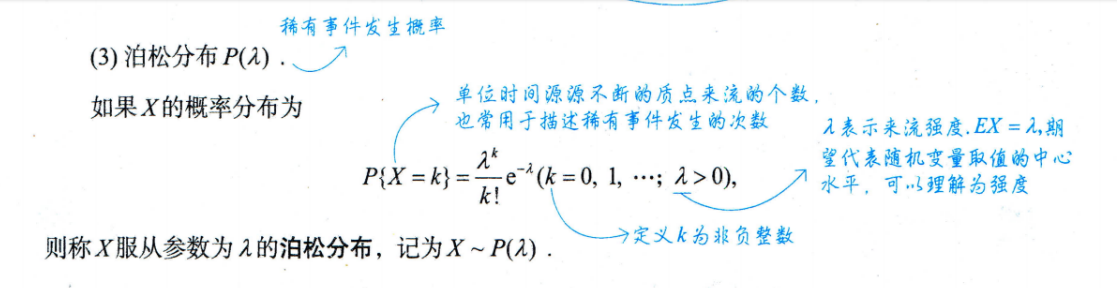 稀有事件发生概率
(3) 泊松分布 P(λ) .
如果 X 的概率分布为
单位时间源源不断的质点来流的个数，
也常用于描述稀有事件发生的次数
λ表示来流强度.EX = λ,期
望代表随机变量取值的中心
水平，可以理解为强度
P{X = k} = \frac{λ^k}{k!} e^{-λ} (k = 0, 1, …; λ > 0),
定义k为非负整数
则称 X 服从参数为 λ 的泊松分布，记为 X ~ P(λ) .